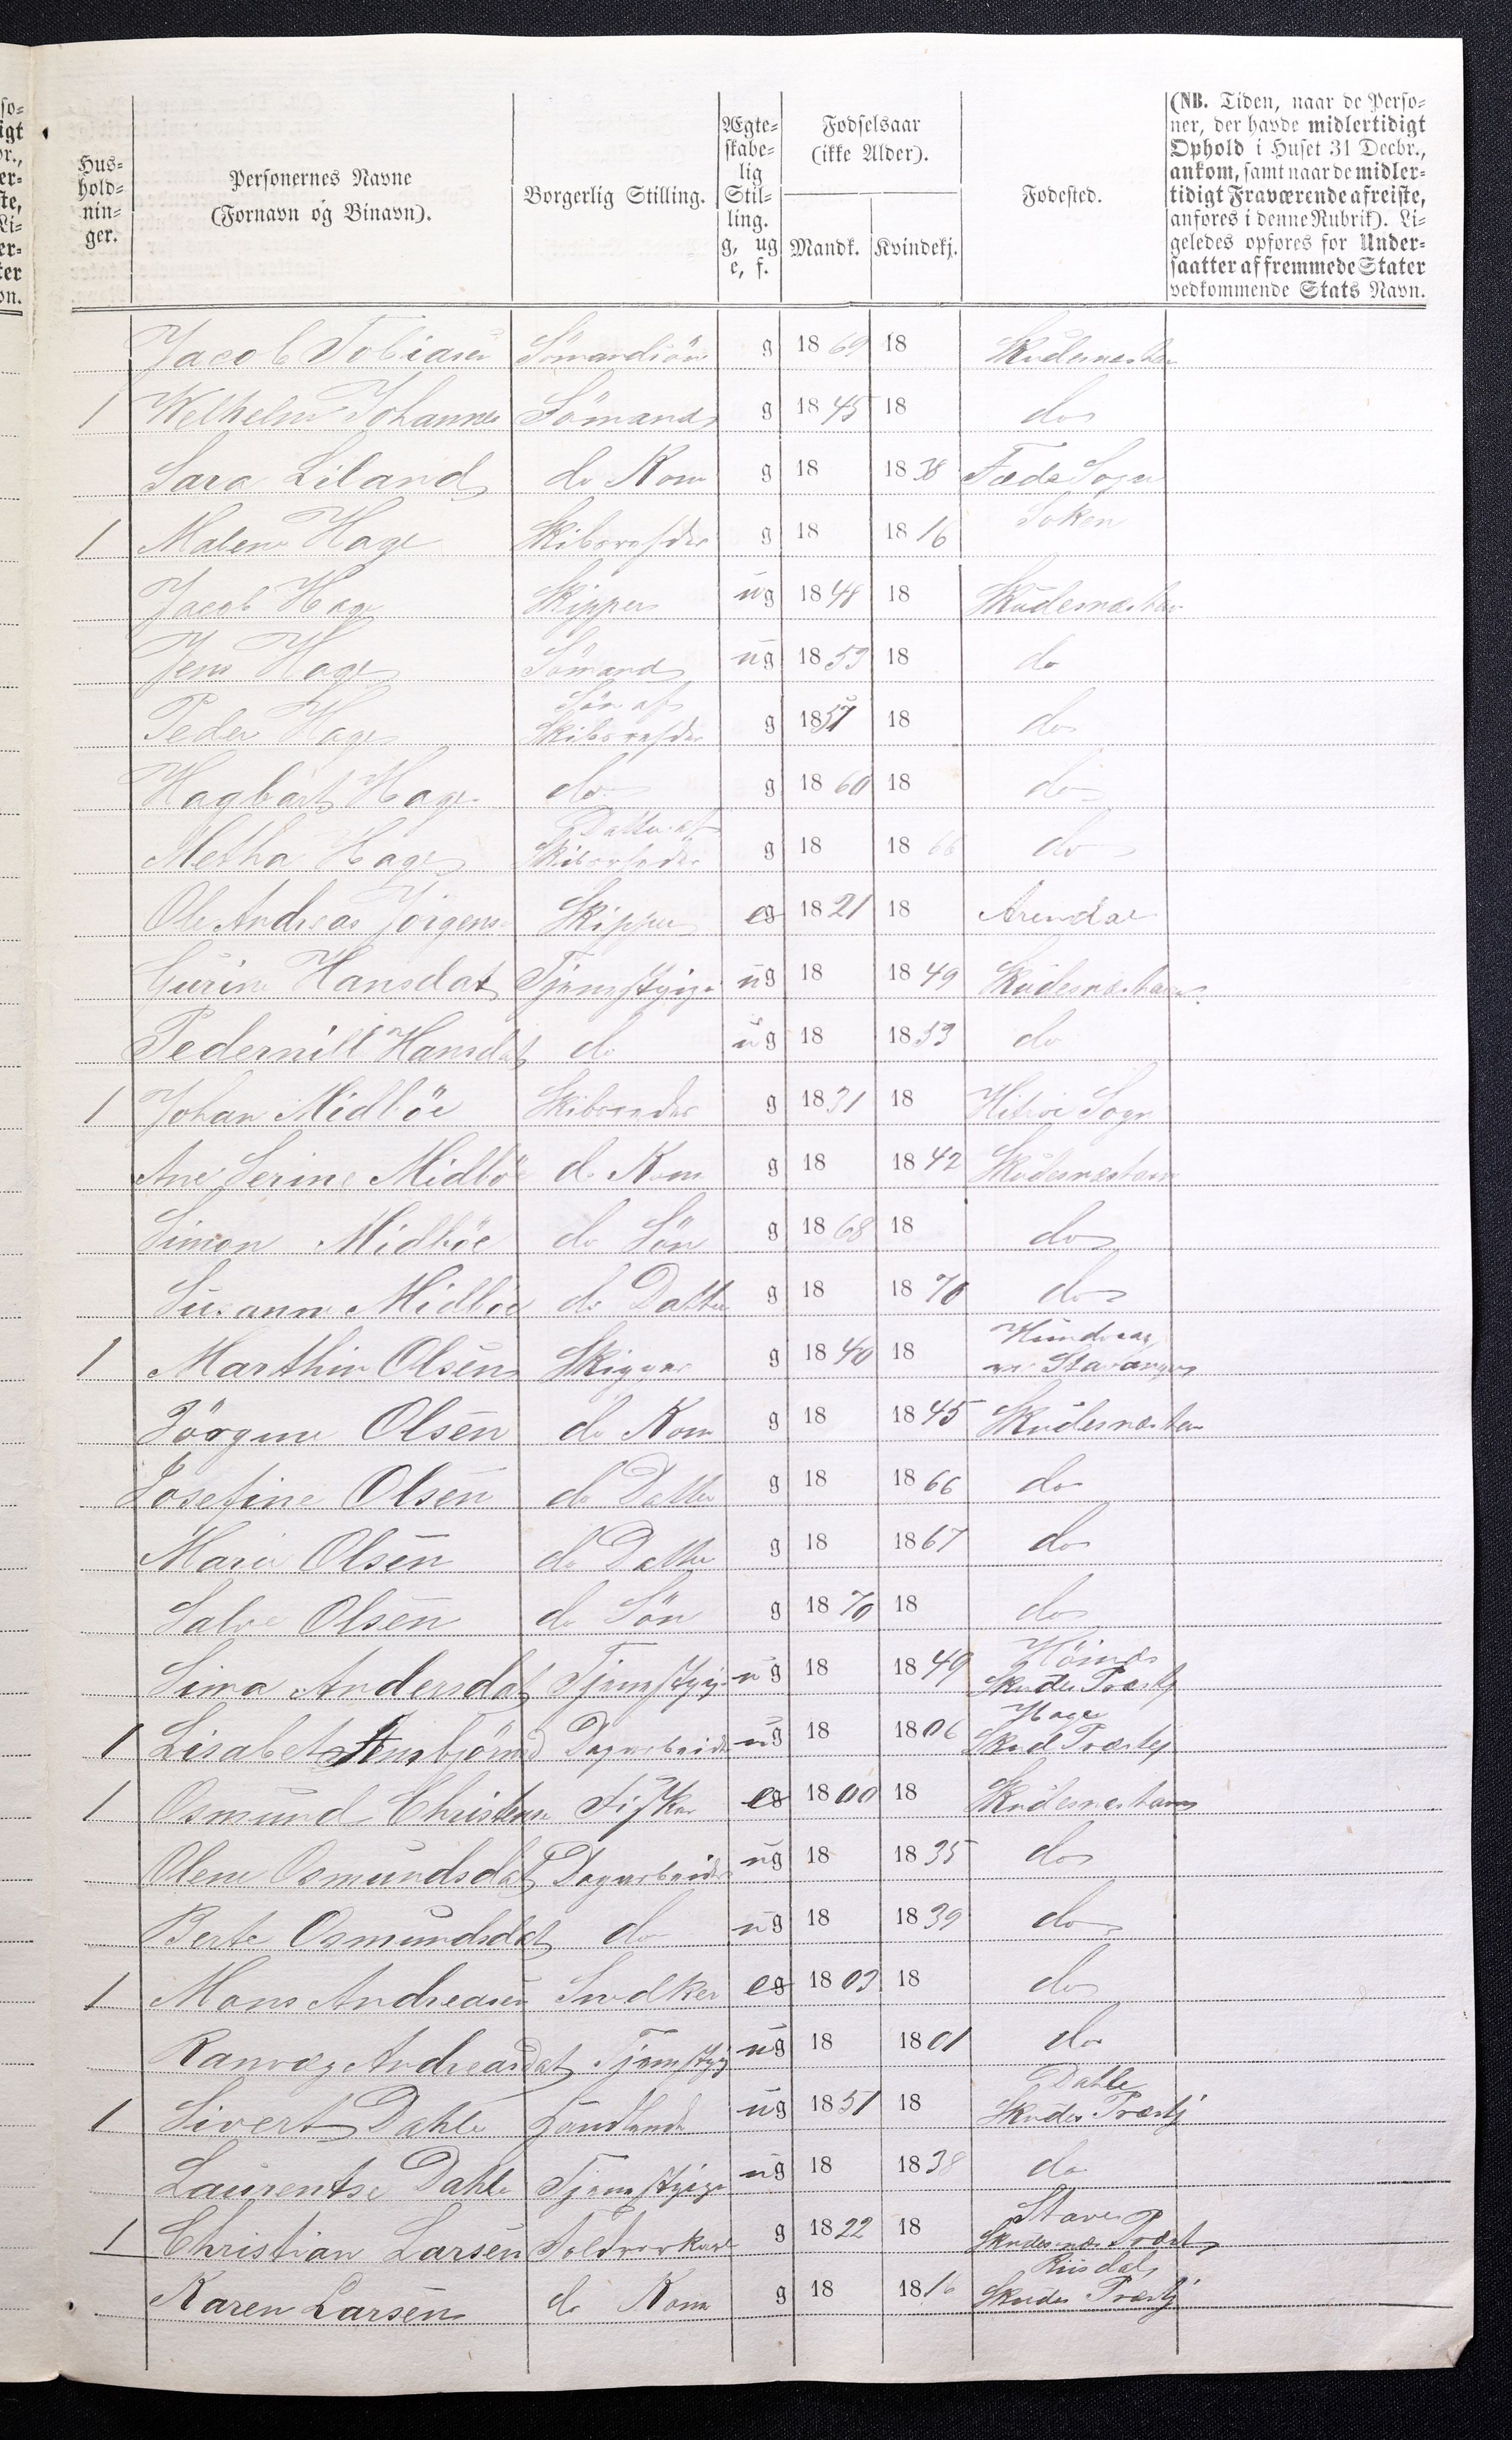 Hus-
hold-
nin-
ger.
Personernes Navne
(Fornavn og Binavn).
Borgerlig Stilling.
Ægte-
skabe-
lig
Stil-
ling.
g, ug
e, f.
Fødselsaar
(ikke Alder).
Mandk. Kvindekj.
Fødested.
(NB. Tiden, naar de Perso-
ner, der havde midlertidigt
Ophold i Huset 31 Decbr.,
ankom, samt naar de midler-
tidigt Fraværende afreiste,
anføres i denne Rubrik). Li-
geledes opføres for Under-
saatter af fremmede Stater
vedkommende Stats Navn.
Jacob Tobiasen Sømandsøn g 1869 18 Skudesneshavn
1 Welhelm Johannes Sømand g 1845 18 do
Sara Liland do Kone g 18 1838 Feda Sogn
1 Malene Hage Skibsreder g 18 1816 Soken
Jacob Hage Skipper ug 1848 18 Skudesnæshav
Jens Hage Sømand ug 1853 18 do
Peder Hage Søn af
Skibsreder g 1857 18 do
Hagbart Hage do g 1860 18 do
Metha Hage Datter af
Skibsreder g 18 1866 do
Ole Andreas Jörgens Skipper eg 1821 18 Arendal
Gurine Hansdat Tjenestpige ug 18 1849 Skudesnæshavn
Pedernille Hansdat do ug 18 1853 do
1 Johan Midböe Skibsreder g 1831 18 Hitröe Sogn
Ane Serine Midböe do Kone g 18 1842 Skudesnæshavn
Simon Midböe do Sön g 1868 18 do
Susanne Midböe do Datter g 18 1870 do
1 Marthin Olsen Skipper g 1840 18 Hundvaag
Stavanger
Jörgine Olsen do Kone g 18 1845 Skudesnæshavn
Josefine Olsen do Datter g 18 1866 do
Marie Olsen do Datter g 18 1867 do
Salve Olsen do Sön g 1870 18 do
Sima Andersdat Tjenestpige ug 18 1849 Höines
Skudes Præstj
1 Lisabet Dagarbeider ug 18 1806 Hage
Skud Præstej
1 Osmund Christens Fisker eg 1800 18 Skudesneshavn
Olene Osmundsdat Dagarbeider ug 18 1835 do
Berte Osmundsdat do ug 18 1839 do
1 Mons Andreasen Snedker eg 1803 18 do
Ranvæg Andreasdat Tjenestpig ug 18 1801 do
1 Sivert Dahle Handlende ug 1851 18 Dahle
Skudes Præstj
Laurentse Dahle Tjenestpige ug 18 1838 do
1 Christian Larsen Toldroerkarl g 1822 18 Stave
Skudesnæs Præst
Karen Larsen do Kone g 18 1816 Risdal
Skudes Præstj